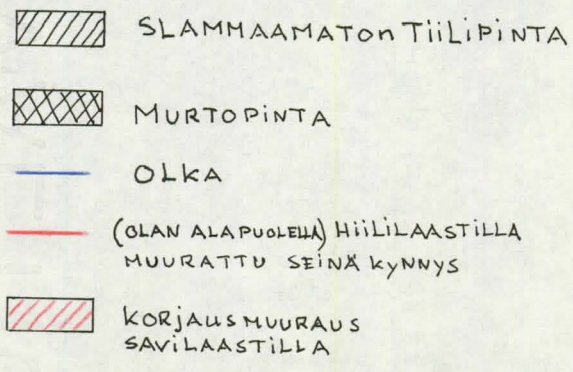 SLAMMAAMATON TIILIPINTA
MURTOPINTA
OLKA
(OLAN ALAPUOLELLA) HIILILAASTILLA
MUURATTU SEINÄ KYNNYS
KORJAUSMUURAUS
SAVILAASTILLA